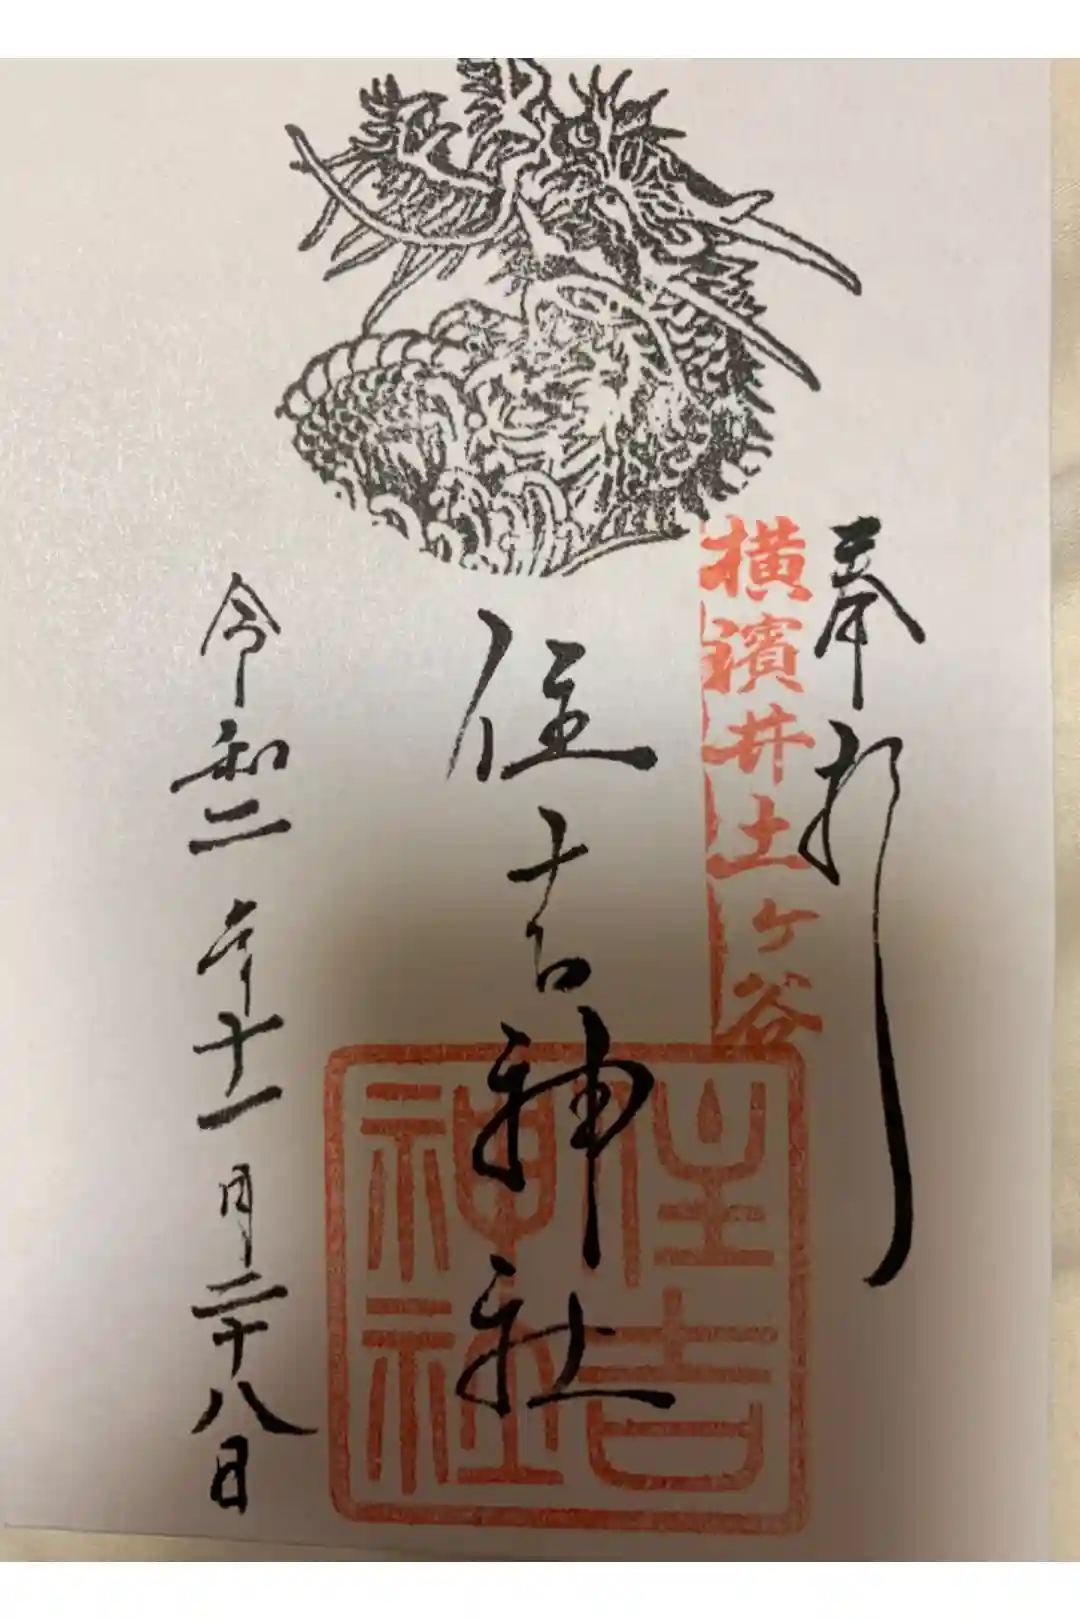 奉拝
横濱井土ヶ谷
住吉神社
住吉
神社
令和二年十一月二十八日